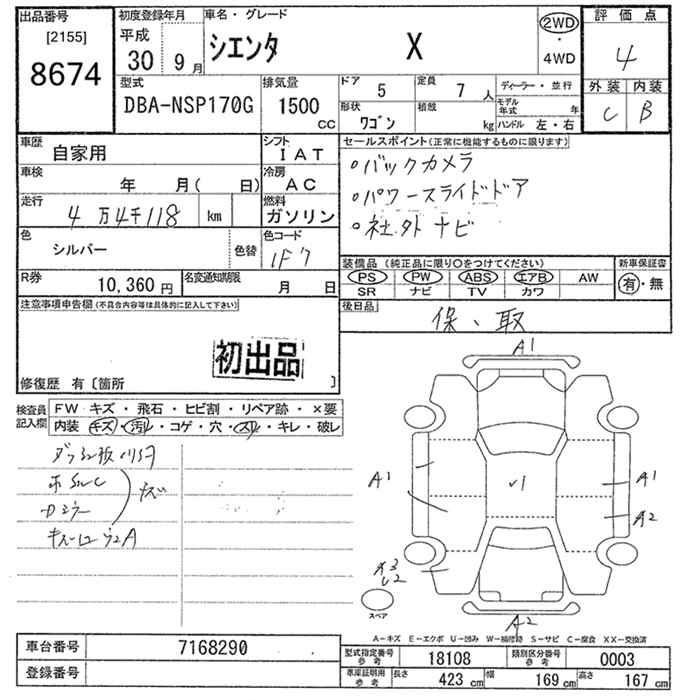 出品番号
[2155]
8674
初度登録年月
平成
30 9月
車名・グレード
シエンタ X
2WD
・
4WD
評価点
4
外装 内装
C B
型式
DBA-NSP170G
排気量
1500 CC
ドア
5
定員
7 人
形状
ワゴン
積載
kg
ディーラー・並行
モデル年式 年
ハンドル 左・右
車歴
自家用
シフト
IAT
車検
年 月( 日)
冷房
AC
走行
4万4千118 km
燃料
ガソリン
色
シルバー
色替
色コード
1F7
R券
10,360円
名変通知期限
月 日
セールスポイント(正常に機能するものに限ります)
○バックカメラ
○パワースライドドア
○社外ナビ
装備品(純正品に限り○をつけてください)
PS PW ABS エアB AW
SR ナビ TV カワ
新車保証書
有・無
後日品
保、取
注意事項申告欄(不具合内容等は具体的に記入して下さい)
初出品
修復歴 有〔箇所 〕
検査員記入欄
FW キズ・飛石・ヒビ割・リペア跡・×要
内装 キズ・汚れ・コゲ・穴・スレ・キレ・破レ
A1
A1
A1
A2
A2
スペア
A-キズ E-エクボ U-凹み W-補修跡 S-サビ C-腐食 XX-交換済
車台番号 7168290
登録番号
型式指定番号参考 18108
類別区分番号参考 0003
車庫証明用参考 長さ 423cm 幅 169cm 高さ 167cm